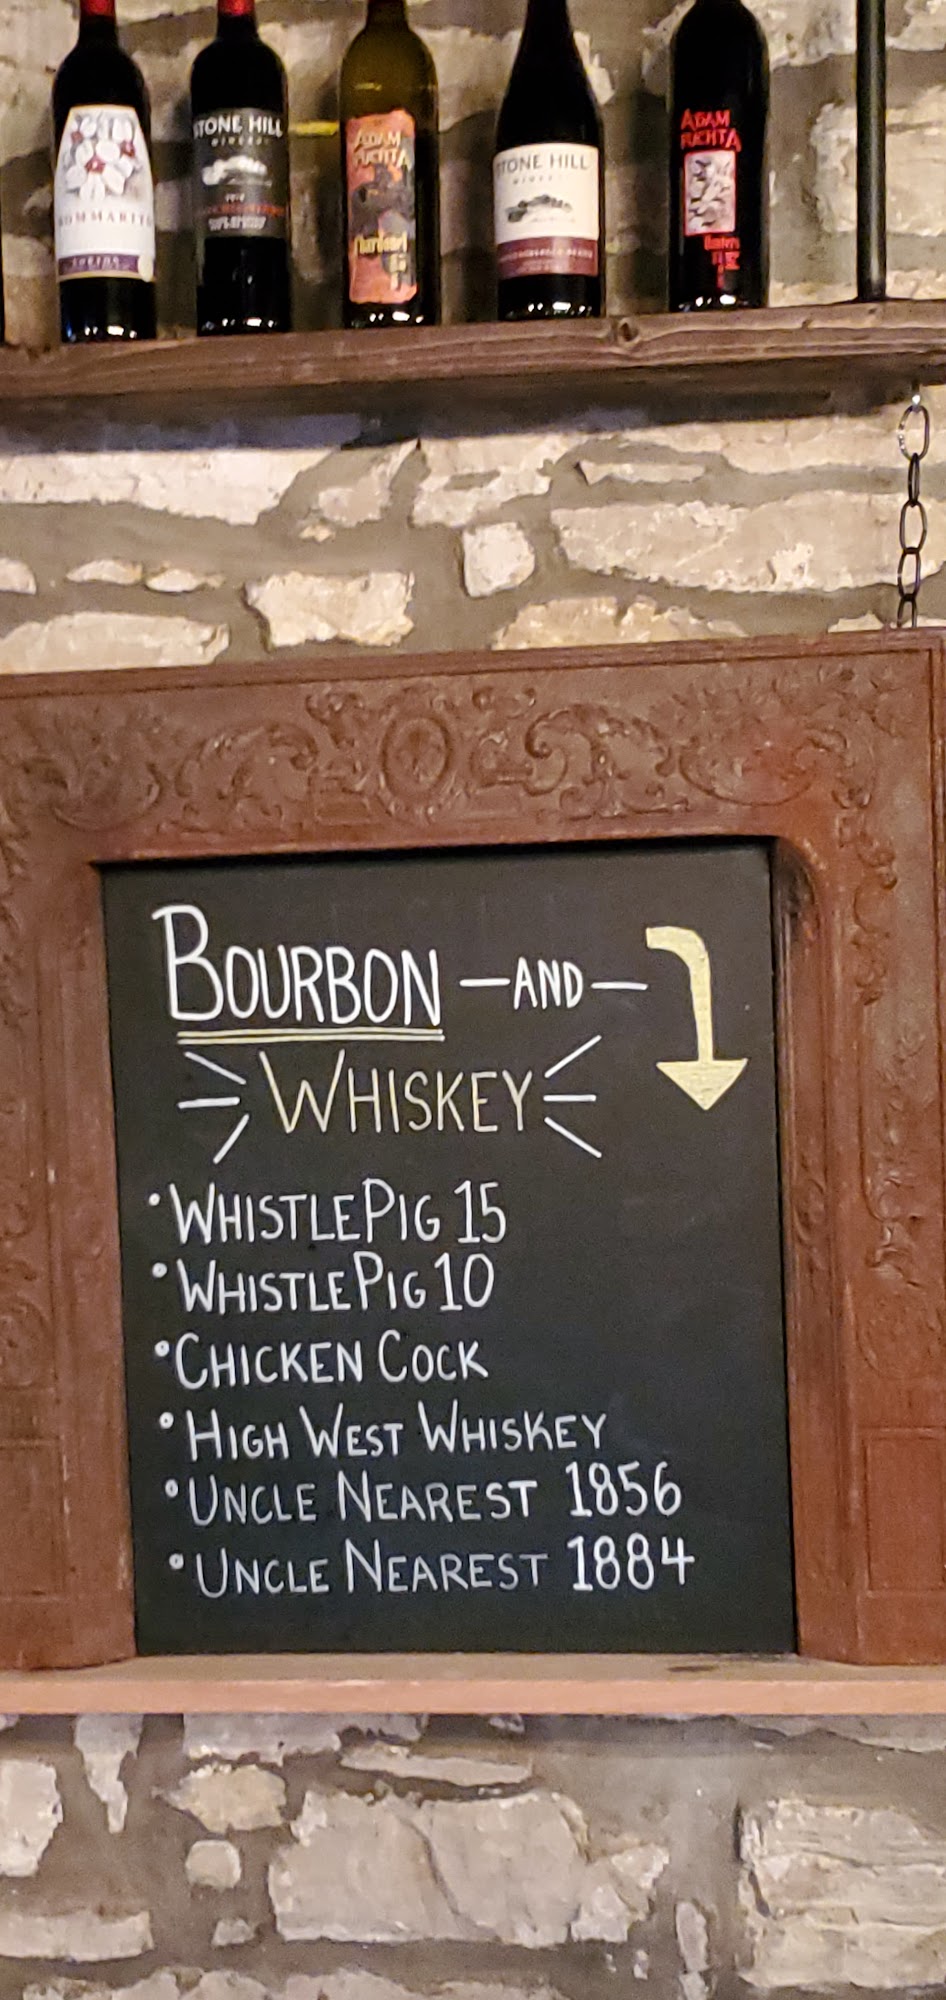 STONE HILL
WINERY
ADAM
PUCHTA
STONE HILL
WINERY
ADAM
PUCHTA
BOURBON —AND—
WHISKEY
• WHISTLEPIG 15
• WHISTLEPIG 10
• CHICKEN COCK
• HIGH WEST WHISKEY
• UNCLE NEAREST 1856
• UNCLE NEAREST 1884